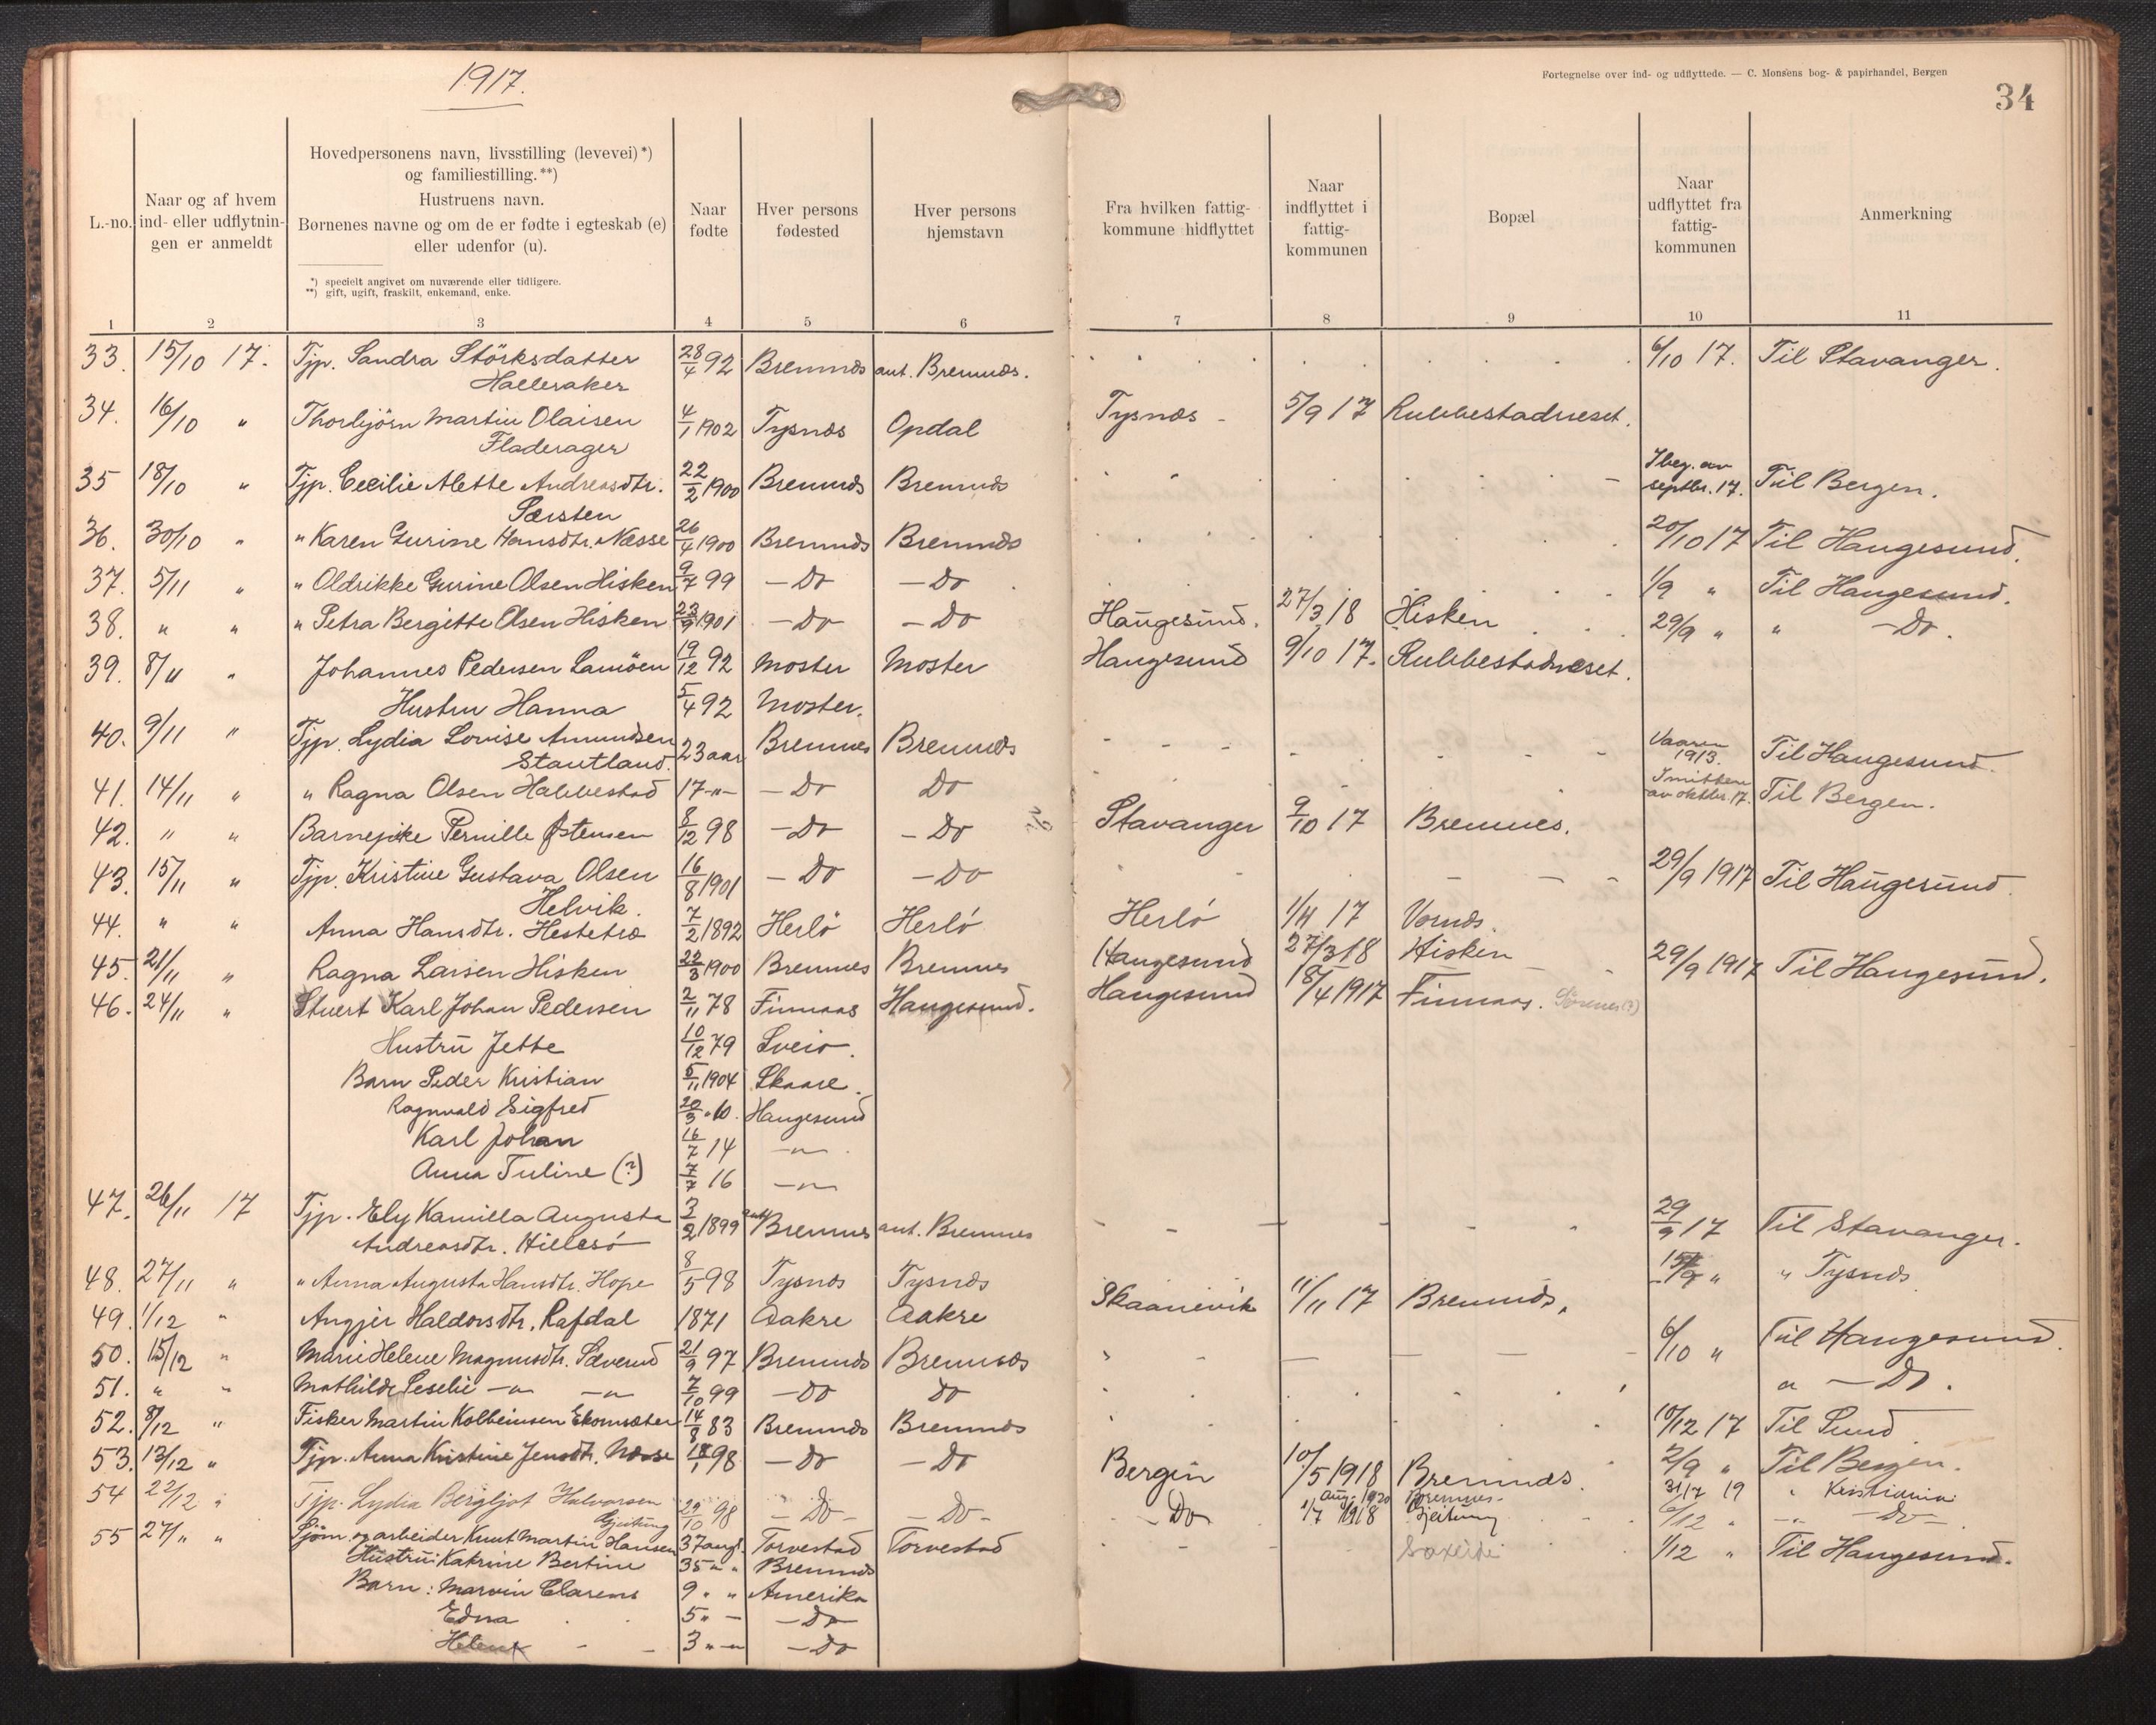 1917.
Fortegnelse over ind- og udflyttede. — C. Monsens bog- & papirhandel, Bergen
34
L.-no.
Naar og af hvem
ind- eller udflytnin-
gen er anmeldt
Hovedpersonens navn, livsstilling (levevei)*)
og familiestilling.**)
Hustruens navn.
Børnenes navne og om de er fødte i egteskab (e)
eller udenfor (u).
*) specielt angivet om nuværende eller tidligere.
**) gift, ugift, fraskilt, enkemand, enke.
Naar
fødte
Hver persons
fødested
Hver persons
hjemstavn
Fra hvilken fattig-
kommune hidflyttet
Naar
indflyttet i
fattig-
kommunen
Bopæl
Naar
udflyttet fra
fattig-
kommunen
Anmerkning
1 2 3 4 5 6 7 8 9 10 11
33. 15/10 17. Tjp. Sandra Störksdatter 28/4 92 Bremnæs ant. Bremnæs. 6/10 17. Til Stavanger.
Halleraker
34. 16/10 " Thorbjörn Martin Olaisen 4/1 1902 Tysnæs Opdal Tysnæs - 5/9 17 Rubbestadneset.
Fladerager
35 18/10 " Tjp. Cecilie Alette Andreasdtr. 22/2 1900 Bremnæs Bremnæs I beg. av septbr. 17. Til Bergen.
Særsten
36. 30/10 " " Karen Gurine Hansdtr. Nesse 26/4 1900 Bremnæs Bremnæs 20/10 17 Til Haugesund.
37. 5/11 " " Oldrikke Gurine Olsen Hisken 9/7 99 - Do - Do 1/9 " Til Haugesund.
38. " " " Petra Bergitte Olsen Hisken 23/9 1901 - Do - Do Haugesund. 27/3 18 Hisken 29/9 " " - Do.
39. 8/11 " Johannes Pedersen Lamöen 19/12 92 Moster Moster Haugesund 9/10 17. Rubbestadneset.
Hustru Hanna 5/4 92 Moster.
40. 9/11 " Tjp. Lydia Lovise Amundsen 23 aar Bremnes Bremnæs Vaaren 1913. Til Haugesund.
Stautland.
41. 14/11 " " Ragna Olsen Habbestad 17 -"- - Do Do I midten av oktbr. 17. Til Bergen.
42. " " Barnepike Pernille Østensen 8/12 98 - Do - Do Stavanger 9/10 17 Bremnes.
43. 15/11 " Tjp. Kristine Gustava Olsen 16/8 1901 - Do - Do 29/9 1917 Til Haugesund.
Helvik.
44. " " Anna Hansdtr. Hestetræ 7/2 1892 Herlö Herlö Herló 1/11 17 Vornæs.
45. 21/11 " Ragna Larsen Hisken 22/3 1900 Bremnes Bremnes Haugesund 27/3 18 Hisken 29/9 1917 Til Haugesund.
46. 24/11 " Stuert Karl Johan Pedersen 2/11 78 Finnaas Haugesund. Haugesund 18/4 1917 Finnaas.
Hustru Jette 10/12 79 Sveio.
Barn Peder Kristian 5/11 1904 Skaare.
Ragnvald Sigfred 20/3 " 10. Haugesund
Karl Johan 16/7 14 -"-
Anna Tuline (?) 7/7 16 -"-
47. 26/11 17 Tjp. Ely Kamilla Augusta 3/2 1899 ant. Bremnes ant. Bremnes 29/9 17 Til Stavanger.
Andreasdtr. Hillesó
48. 27/11 " " Anna Augusta Hansdtr. Hope 8/5 98 Tysnæs Tysnæs 15/9 " " Tysnæs
49. 1/12 " Angjer Haldorsdtr. Rafdal 1871 Aakre Aakre Skaanevik 11/11 17 Bremnæs.
50. 15/12 " Marie Helene Magnusdtr. Sæverud 21/9 97 Bremnæs Bremnæs 6/10 " Til Haugesund.
51. " " Mathilde Seselie -"- -"- 7/10 99 - Do Do " - Do.
52. 8/12 " Fisker Martin Kolbeinsen Ekornsæter 14/8 83 Bremnæs Bremnæs 10/12 17 Til Sund
53. 13/12 " Tjp. Anna Kristine Jensdtr. Næsse 18/1 98 - Do - Do Bergen 10/5 1918 Bremnæs. 2/9 " Til Bergen.
54 22/12 " Tjp. Lydia Bergljot Halvorsen 29/10 98 - Do - - Do - Aug. 1920 Bremnes. 31/7 19 " Kristiania
Gjeitung - Do 1/7 1918 Gjeitung 6/12 " -"- Do
55 27/" " Sjöm. og arbeider Knut Martin Hansen 37 aar Torvestad Torvestad 1/12 " Til Haugesund.
Hustru: Katrine Bertine 35 " " Bremnæs
Barn: Marvin Clarens 9 " " Amerika
Edna 5 " - - Do
Helen 3 " -"- - Do